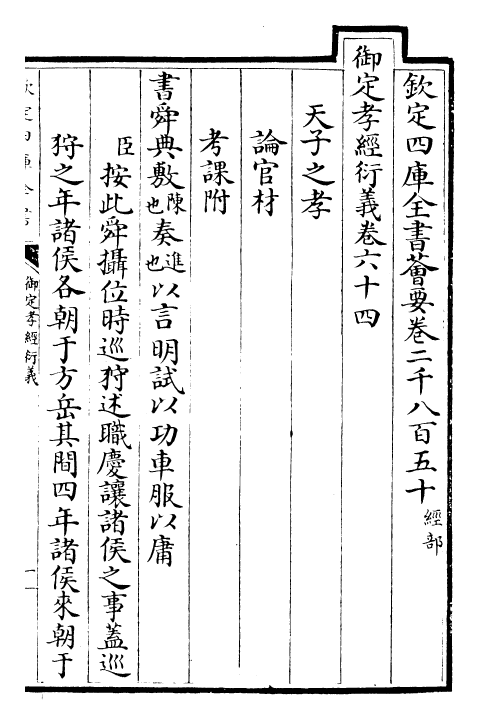 欽定四庫全書薈要卷二千八百五十 經部
御定孝經衍義卷六十四
天子之孝
論官材
考課附
書舜典敷陳也奏進也以言明試以功車服以庸
臣按此舜攝位時巡狩述職慶讓諸侯之事蓋巡
狩之年諸侯各朝于方岳其間四年諸侯來朝于
御定孝經衍義